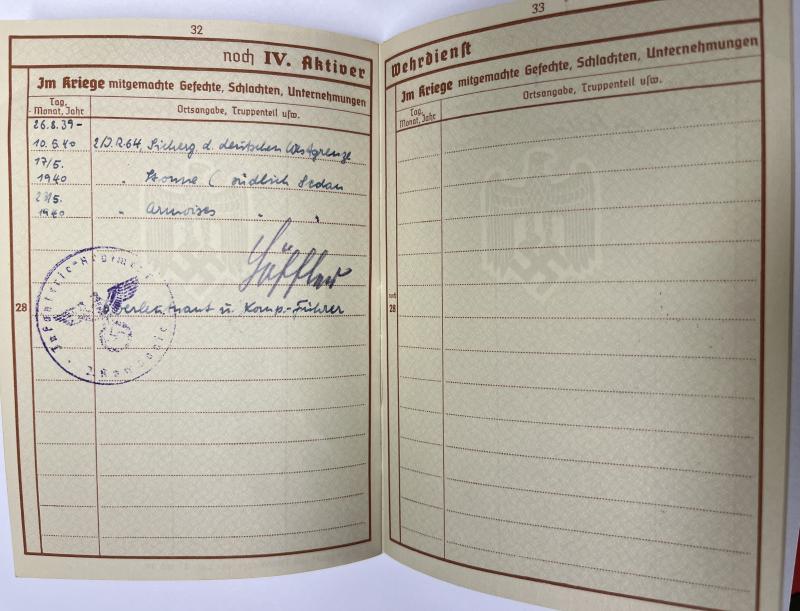 32
noch IV. Aktiver
Im Kriege mitgemachte Gefechte, Schlachten, Unternehmungen
Tag, Monat, Jahr
Ortsangabe, Truppenteil usw.
26.8.39-
10.5.40 2/J.R.64, Sicherg d. deutschen Westgrenze
17/5.
1940 " Stonne ( südlich Sedan
23/5.
1940 " Armoises " "
28
Oberleutnant u. Komp.-Führer
Infanterie-Regiment
2. Kompanie
33
Wehrdienst
Im Kriege mitgemachte Gefechte, Schlachten, Unternehmungen
Tag, Monat, Jahr
Ortsangabe, Truppenteil usw.
noch
28